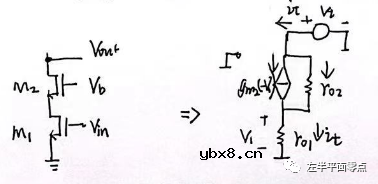 Vout
M2
Vb
M1
Vin
⇒
it
+
Vt
-
gm2(-V1)
ro2
+
V1
-
ro1
it
ybx8.cn
左半平面零点